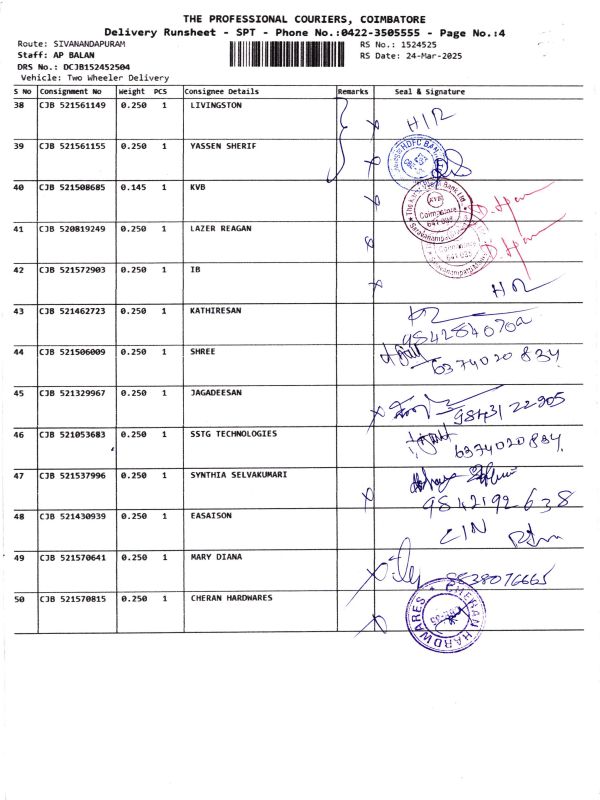 THE PROFESSIONAL COURIERS, COIMBATORE
Delivery Runsheet - SPT - Phone No.:0422-3505555 - Page No.:4
Route: SIVANANDAPURAM RS No.: 1524525
Staff: AP BALAN RS Date: 24-Mar-2025
DRS No.: DCJB152452504
Vehicle: Two Wheeler Delivery
S No Consignment No Weight PCS Consignee Details Remarks Seal & Signature
38 CJB 521561149 0.250 1 LIVINGSTON
39 CJB 521561155 0.250 1 YASSEN SHERIF HDFC BANK
40 CJB 521508685 0.145 1 KVB
KVB
Coimbatore
641 035
41 CJB 520819249 0.250 1 LAZER REAGAN
42 CJB 521572903 0.250 1 IB
43 CJB 521462723 0.250 1 KATHIRESAN
44 CJB 521506009 0.250 1 SHREE 6374020834
45 CJB 521329967 0.250 1 JAGADEESAN 9843122905
46 CJB 521053683 0.250 1 SSTG TECHNOLOGIES 6374020834
47 CJB 521537996 0.250 1 SYNTHIA SELVAKUMARI
9842192638
48 CJB 521430939 0.250 1 EASAISON
49 CJB 521570641 0.250 1 MARY DIANA
50 CJB 521570815 0.250 1 CHERAN HARDWARES CHERAN HARDWARES